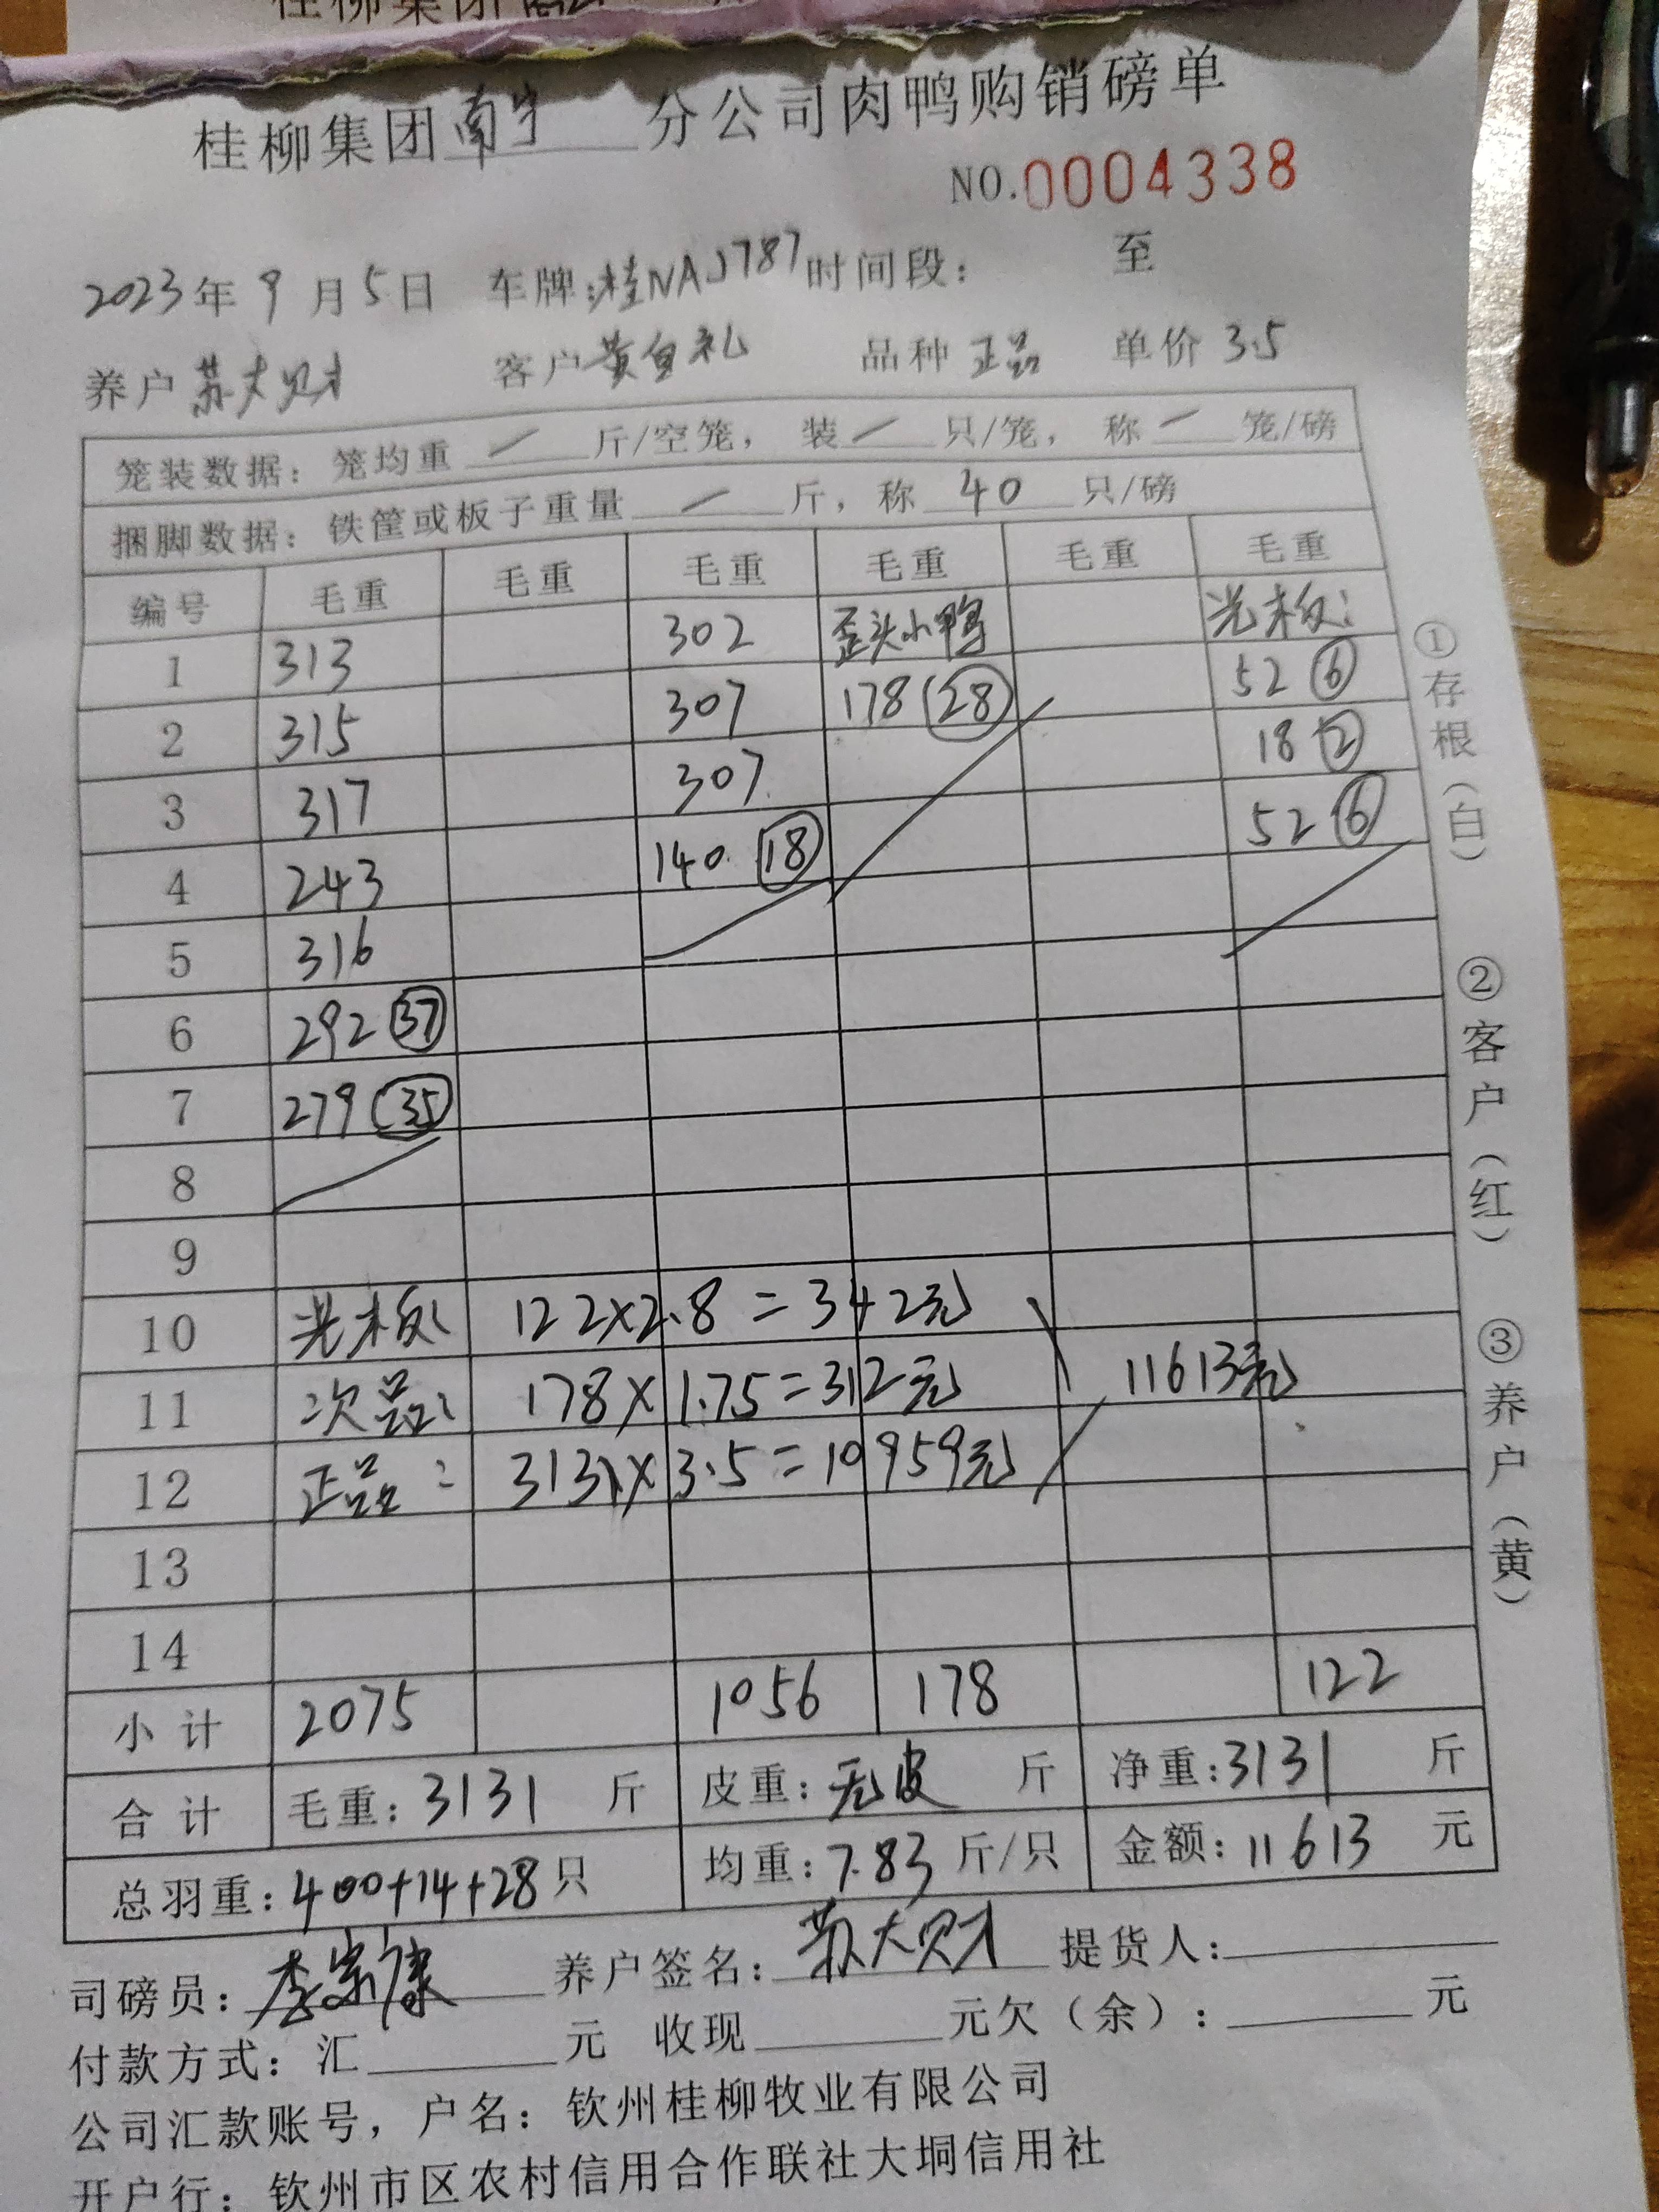 桂柳集团南宁分公司肉鸭购销磅单
NO.0004338
2023年9月5日 车牌:桂NAJ787时间段: 至
养户 苏大财 客户 黄自礼 品种 正品 单价 3.5
笼装数据: 笼均重 / 斤/空笼, 装 / 只/笼, 称 / 笼/磅
捆脚数据: 铁筐或板子重量 / 斤, 称 40 只/磅
编号 毛重 毛重 毛重 毛重 毛重 毛重
1 313 302 歪头小鸭 光板:
2 315 307 178 (28) 52 (6)
3 317 307 18 (2)
4 243 140 (18) 52 (6)
5 316
6 292 (37)
7 279 (35)
8
9
10 光板: 122×2.8=342元
11 次品: 178×1.75=312元 11613元
12 正品: 3131×3.5=10959元
13
14
小计 2075 1056 178 122
合计 毛重: 3131 斤 皮重: 无皮 斤 净重: 3131 斤
总羽重: 400+14+28 只 均重: 7.83 斤/只 金额: 11613 元
司磅员: 李宗康 养户签名: 苏大财 提货人:
付款方式: 汇 元 收现 元欠（余）: 元
公司汇款账号, 户名: 钦州桂柳牧业有限公司
开户行: 钦州市区农村信用合作联社大垌信用社
①存根（白）
②客户（红）
③养户（黄）